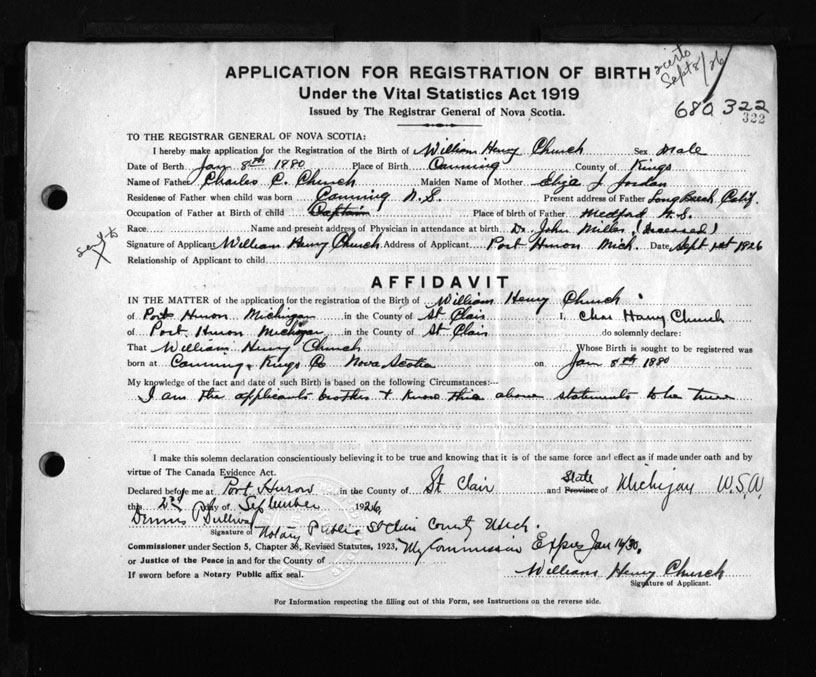 APPLICATION FOR REGISTRATION OF BIRTH
Sept 8/26
Under the Vital Statistics Act 1919
Issued by The Registrar General of Nova Scotia.
680 322
322
TO THE REGISTRAR GENERAL OF NOVA SCOTIA:
I hereby make application for the Registration of the Birth of William Henry Church Sex Male
Date of Birth Jan 8th 1880 Place of Birth Canning County of Kings
Name of Father Charles C. Church Maiden Name of Mother Eliza J Jordan
Residense of Father when child was born Canning N.S. Present address of Father Long Beach, Calif.
Occupation of Father at Birth of child Captain Place of birth of Father Medford N.S.
Race Name and present address of Physician in attendance at birth Dr. John Miller (Deceased)
Signature of Applicant William Henry Church Address of Applicant Port Huron Mich. Date Sept 1st 1926
Relationship of Applicant to child
AFFIDAVIT
IN THE MATTER of the application for the registration of the Birth of William Henry Church
of Port Huron Michigan in the County of St Clair I, Chas Harry Church
of Port Huron Michigan in the County of St Clair do solemnly declare:
That William Henry Church Whose Birth is sought to be registered was
born at Canning Kings Co Nova Scotia on Jan 8th 1880
My knowledge of the fact and date of such Birth is based on the following Circumstances:—
I am the applicants brother & know the above statements to be true
I make this solemn declaration conscientiously believing it to be true and knowing that it is of the same force and effect as if made under oath and by
virtue of The Canada Evidence Act.
Declared before me at Port Huron in the County of St Clair and State Province of Michigan U.S.A.
this 2nd day of September 1926
Dennis P Sullivan
Signature of Notary Public St Clair County Mich.
Commissioner under Section 5, Chapter 38, Revised Statutes, 1923, My Commission Expires Jan 16/30.
or Justice of the Peace in and for the County of
If sworn before a Notary Public affix seal. William Henry Church
Signature of Applicant.
For Information respecting the filling out of this Form, see Instructions on the reverse side.